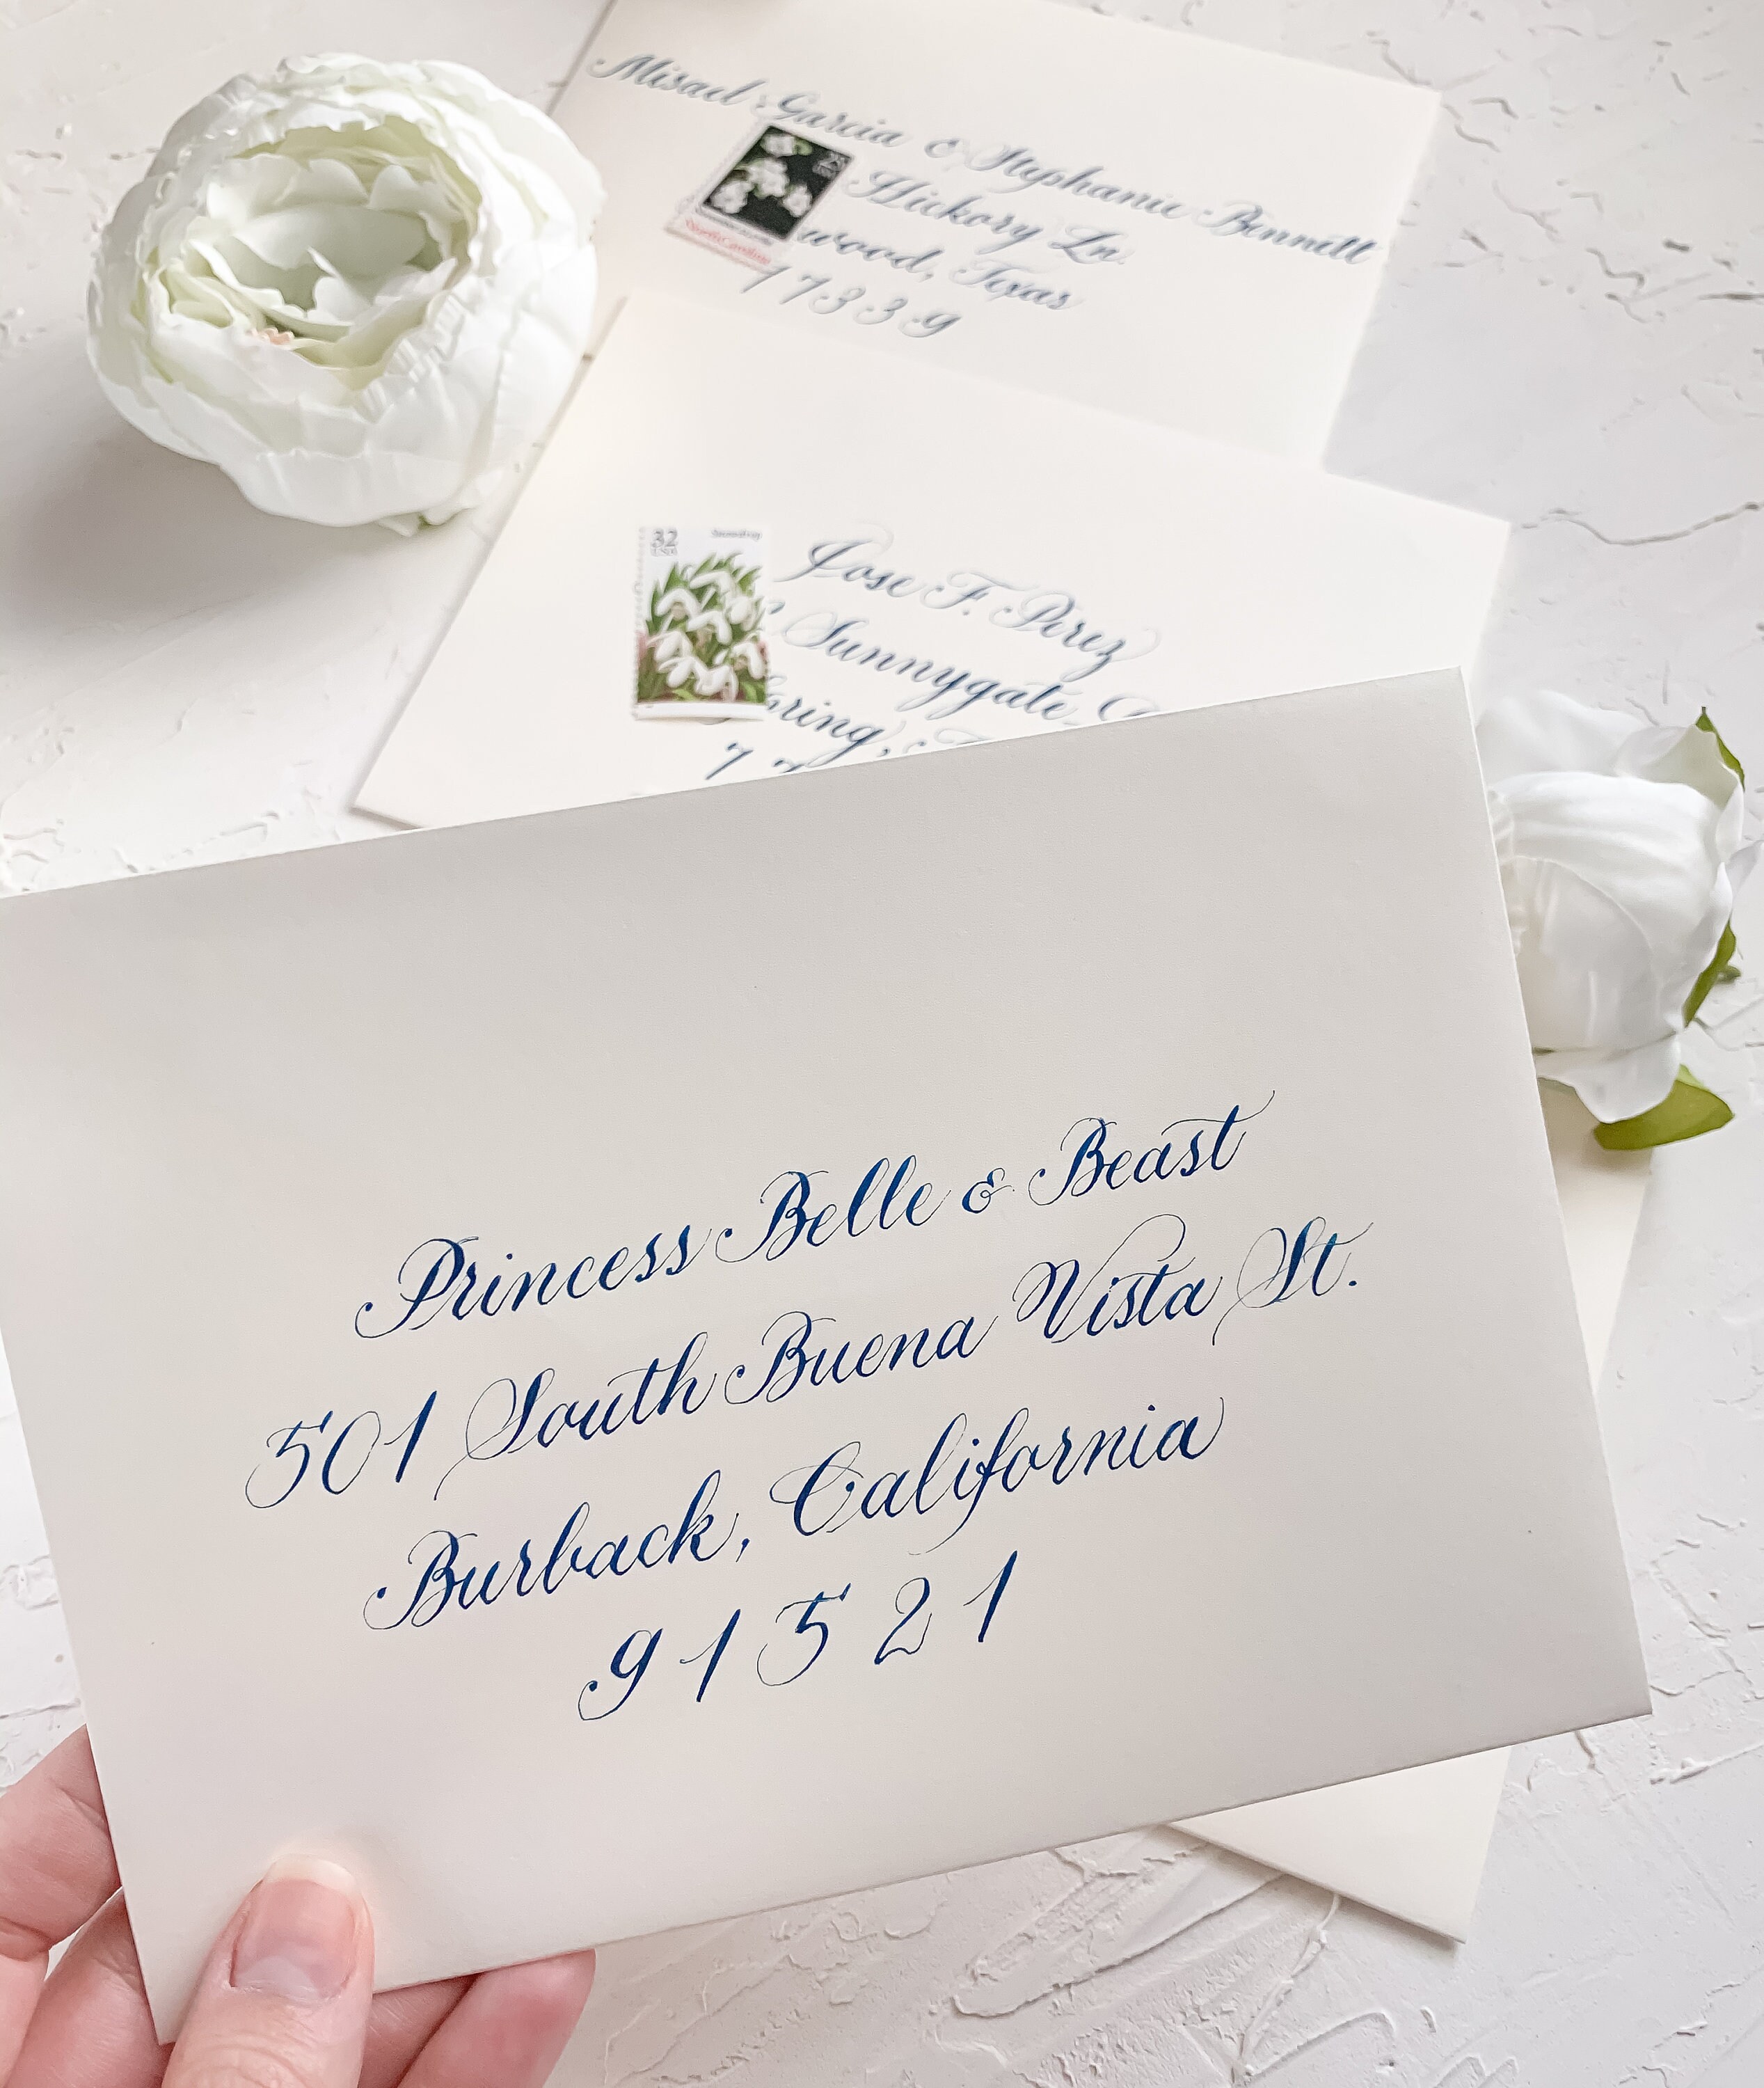 Misael Garcia & Stephanie Bennett
Hickory Ln.
wood, Texas
77339
North Carolina
32
USA
Snowdrop
Jose F. Perez
Sunnygate
ring,
7
Princess Belle & Beast
501 South Buena Vista St.
Burback, California
91521